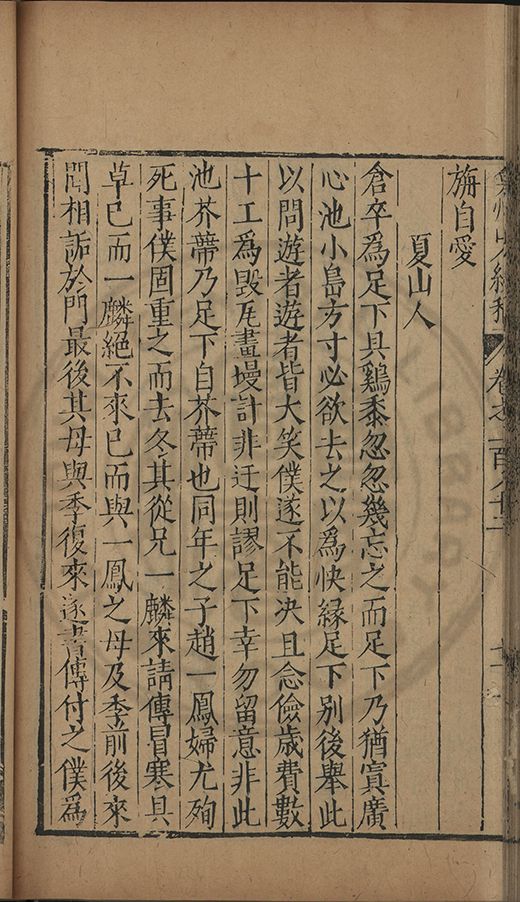 旃自愛
夏山人
倉卒爲足下具鷄黍忽忽幾忘之而足下乃猶寘廣
心池小島方寸必欲去之以爲快縁足下別後舉此
以問遊者遊者皆大笑僕遂不能决且念儉歲費數
十工爲毀瓦畫墁計非迂則謬足下幸勿留意非此
池芥蔕乃足下自芥蔕也同年之子趙一鳳婦尤殉
死事僕固重之而去冬其從兄一麟來請傳冒寒具
草已而一麟絕不來已而與一鳳之母及季前後來
間相詬於門最後其母與季復來遂書傳付之僕爲